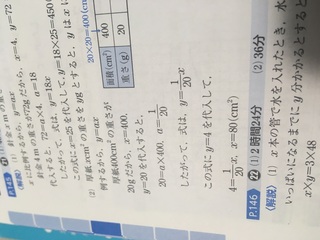 P.145
に比例するから、y=ax
針金4mの重さが72gだから、x=4、y=72
a=18
したがって、式は、y=18x
この式にx=25を代入して、y=18×25=450
(2) 厚紙xcm²の重さをygとすると、yはxに
例するから、y=ax
厚紙400cm²の重さが
20gだから、x=400、
y=20を代入すると、
20=a×400、a=1/20
したがって、式は、y=1/20x
この式にy=4を代入して、
4=1/20x、x=80(cm²)
20×20=400(cm
面積(cm²) 400
重さ(g) 20
P.146 22 (1) 2時間24分 (2) 36分
〈解説〉 (1) x本の管で水を入れたとき、水
いっぱいになるまでにy分かかるとすると
x×y=3×48